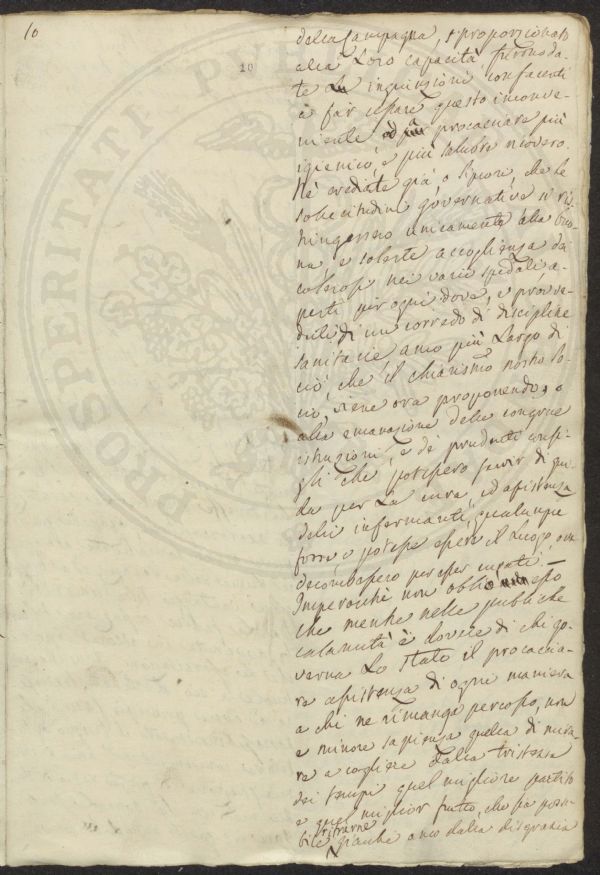 10
10
della Campagna, e proporzionat
alla Loro capacità, furono da-
te Le ingiunzioni confacenti
a far cessare questo inconve-
niente, ed procacciare più
igienico, e più salubre ricovero.
Nè crediate già, o Signori, che le
sollecitudini governative si ris-
tringessero unicamente alla buo-
na, e solerte accoglienza dei
colerosi nei varii spedali a-
perti per ogni dove, e provve-
duti di un corredo di discipline
sanitarie anco più Largo di
ciò, che il chiarismo nostro So-
cio, viene ora proponendo, o
alla emanazione delle congrue
istruzioni, e de' prudenti consi-
gli che potessero servir di gui-
da per La cura, ed assistenza
delli infermanti, qualunque
fosse o potesse essere il Luogo, ove
decombessero per esser curati.
Imperocchè non obbliò
che mentre nelle pubbliche
calamità è dovere di chi go-
verna Lo Stato il procaccia-
re assistenza di ogni maniera
a chi ne rimanga percosso, non
è minore sapienza quella di mira-
re a cogliere dalla tristezza
dei tempi quel migliore partito
e quel miglior frutto, che sia possi-
bile ritrarne anco dalla disgrazia
PROSPERITATI